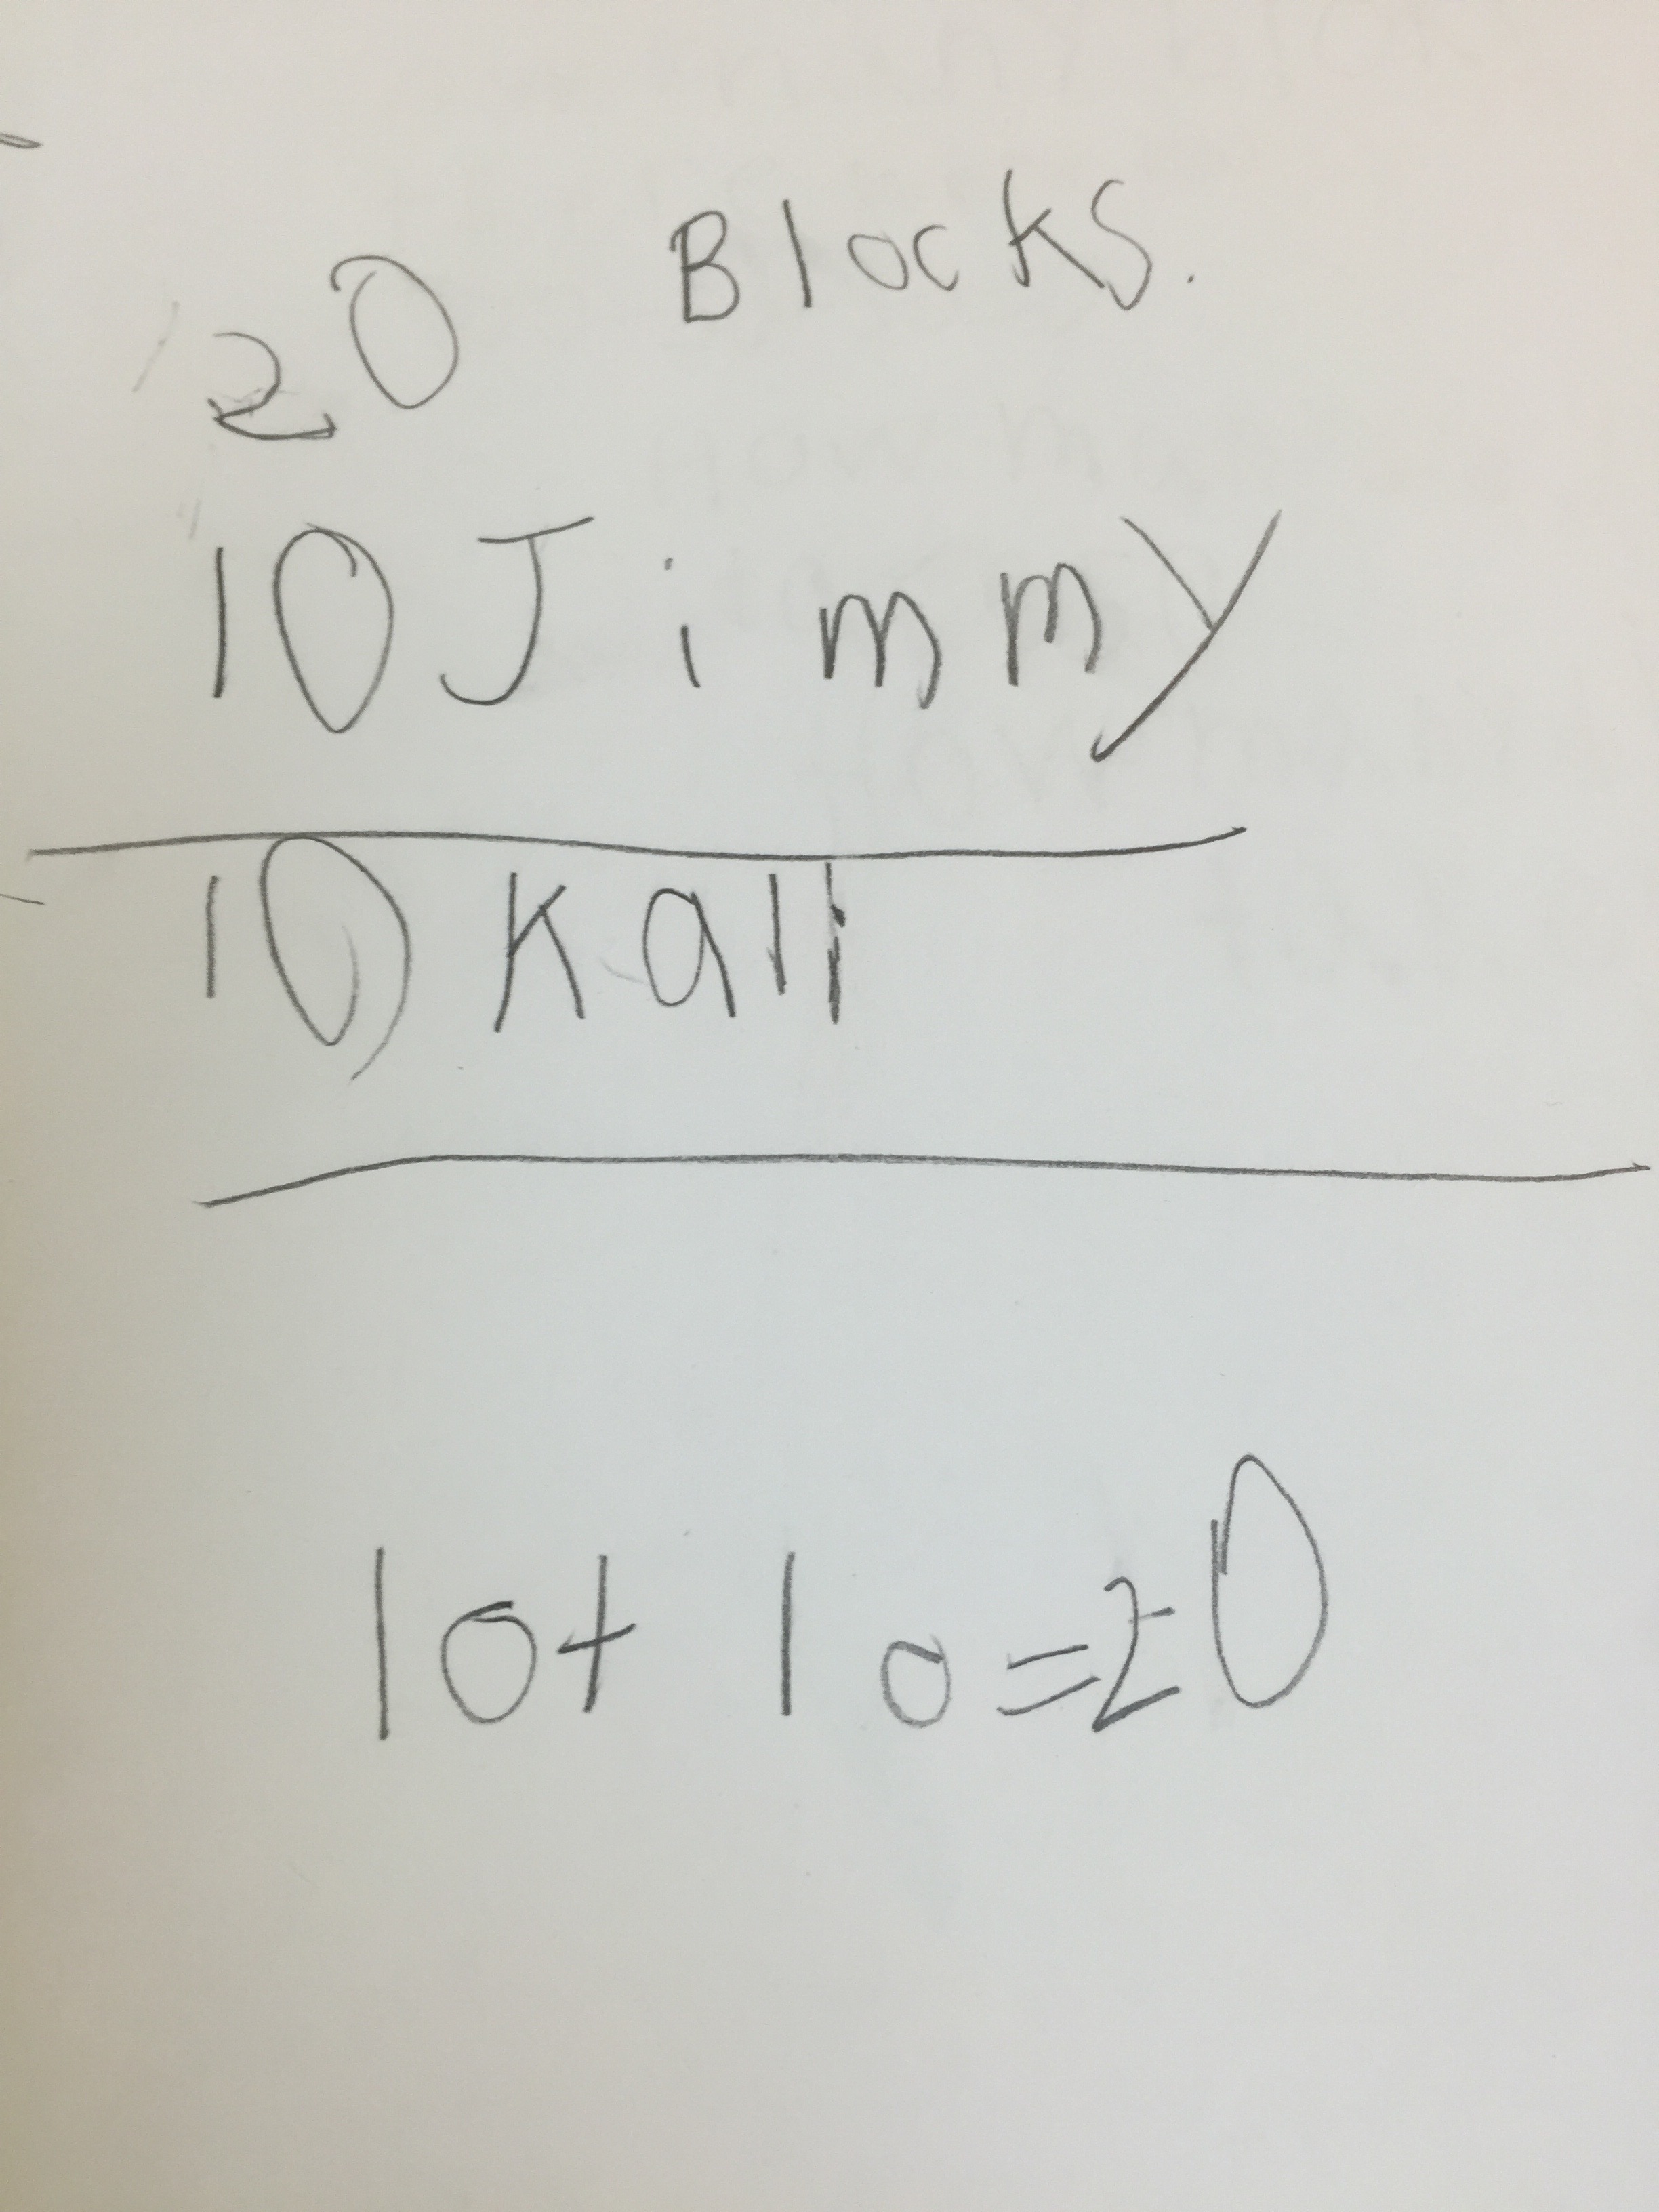 20 Blocks.
10 Jimmy
10 Kali
10+10=20